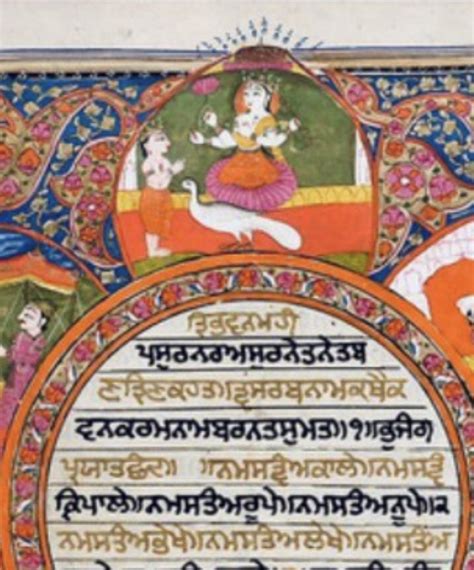 ਤ੍ਰਿਭਵਨਮਹੀ
ਪਸੁਰਨਰਅਸੁਰਨੇਤਨੇਤਬ
ਣਤ੍ਰਿਣਕਹਤ॥ਤ੍ਵਸਰਬਨਾਮਕਥੈਕ
ਵਨਕਰਮਨਾਮਬਰਨਤਸੁਮਤ॥੧॥ਭੁਜੰਗ
ਪ੍ਰਯਾਤਛੰਦ॥ ॥ਨਮਸਤ੍ਵੰਅਕਾਲੇ॥ਨਮਸਤ੍ਵੰ
ਕ੍ਰਿਪਾਲੇ॥ਨਮਸਤੰਅਰੂਪੇ॥ਨਮਸਤੰਅਨੂਪੇ॥੨
ਨਮਸਤੰਅਭੇਖੇ॥ਨਮਸਤੰਅਲੇਖੇ॥ਨਮਸਤੰ